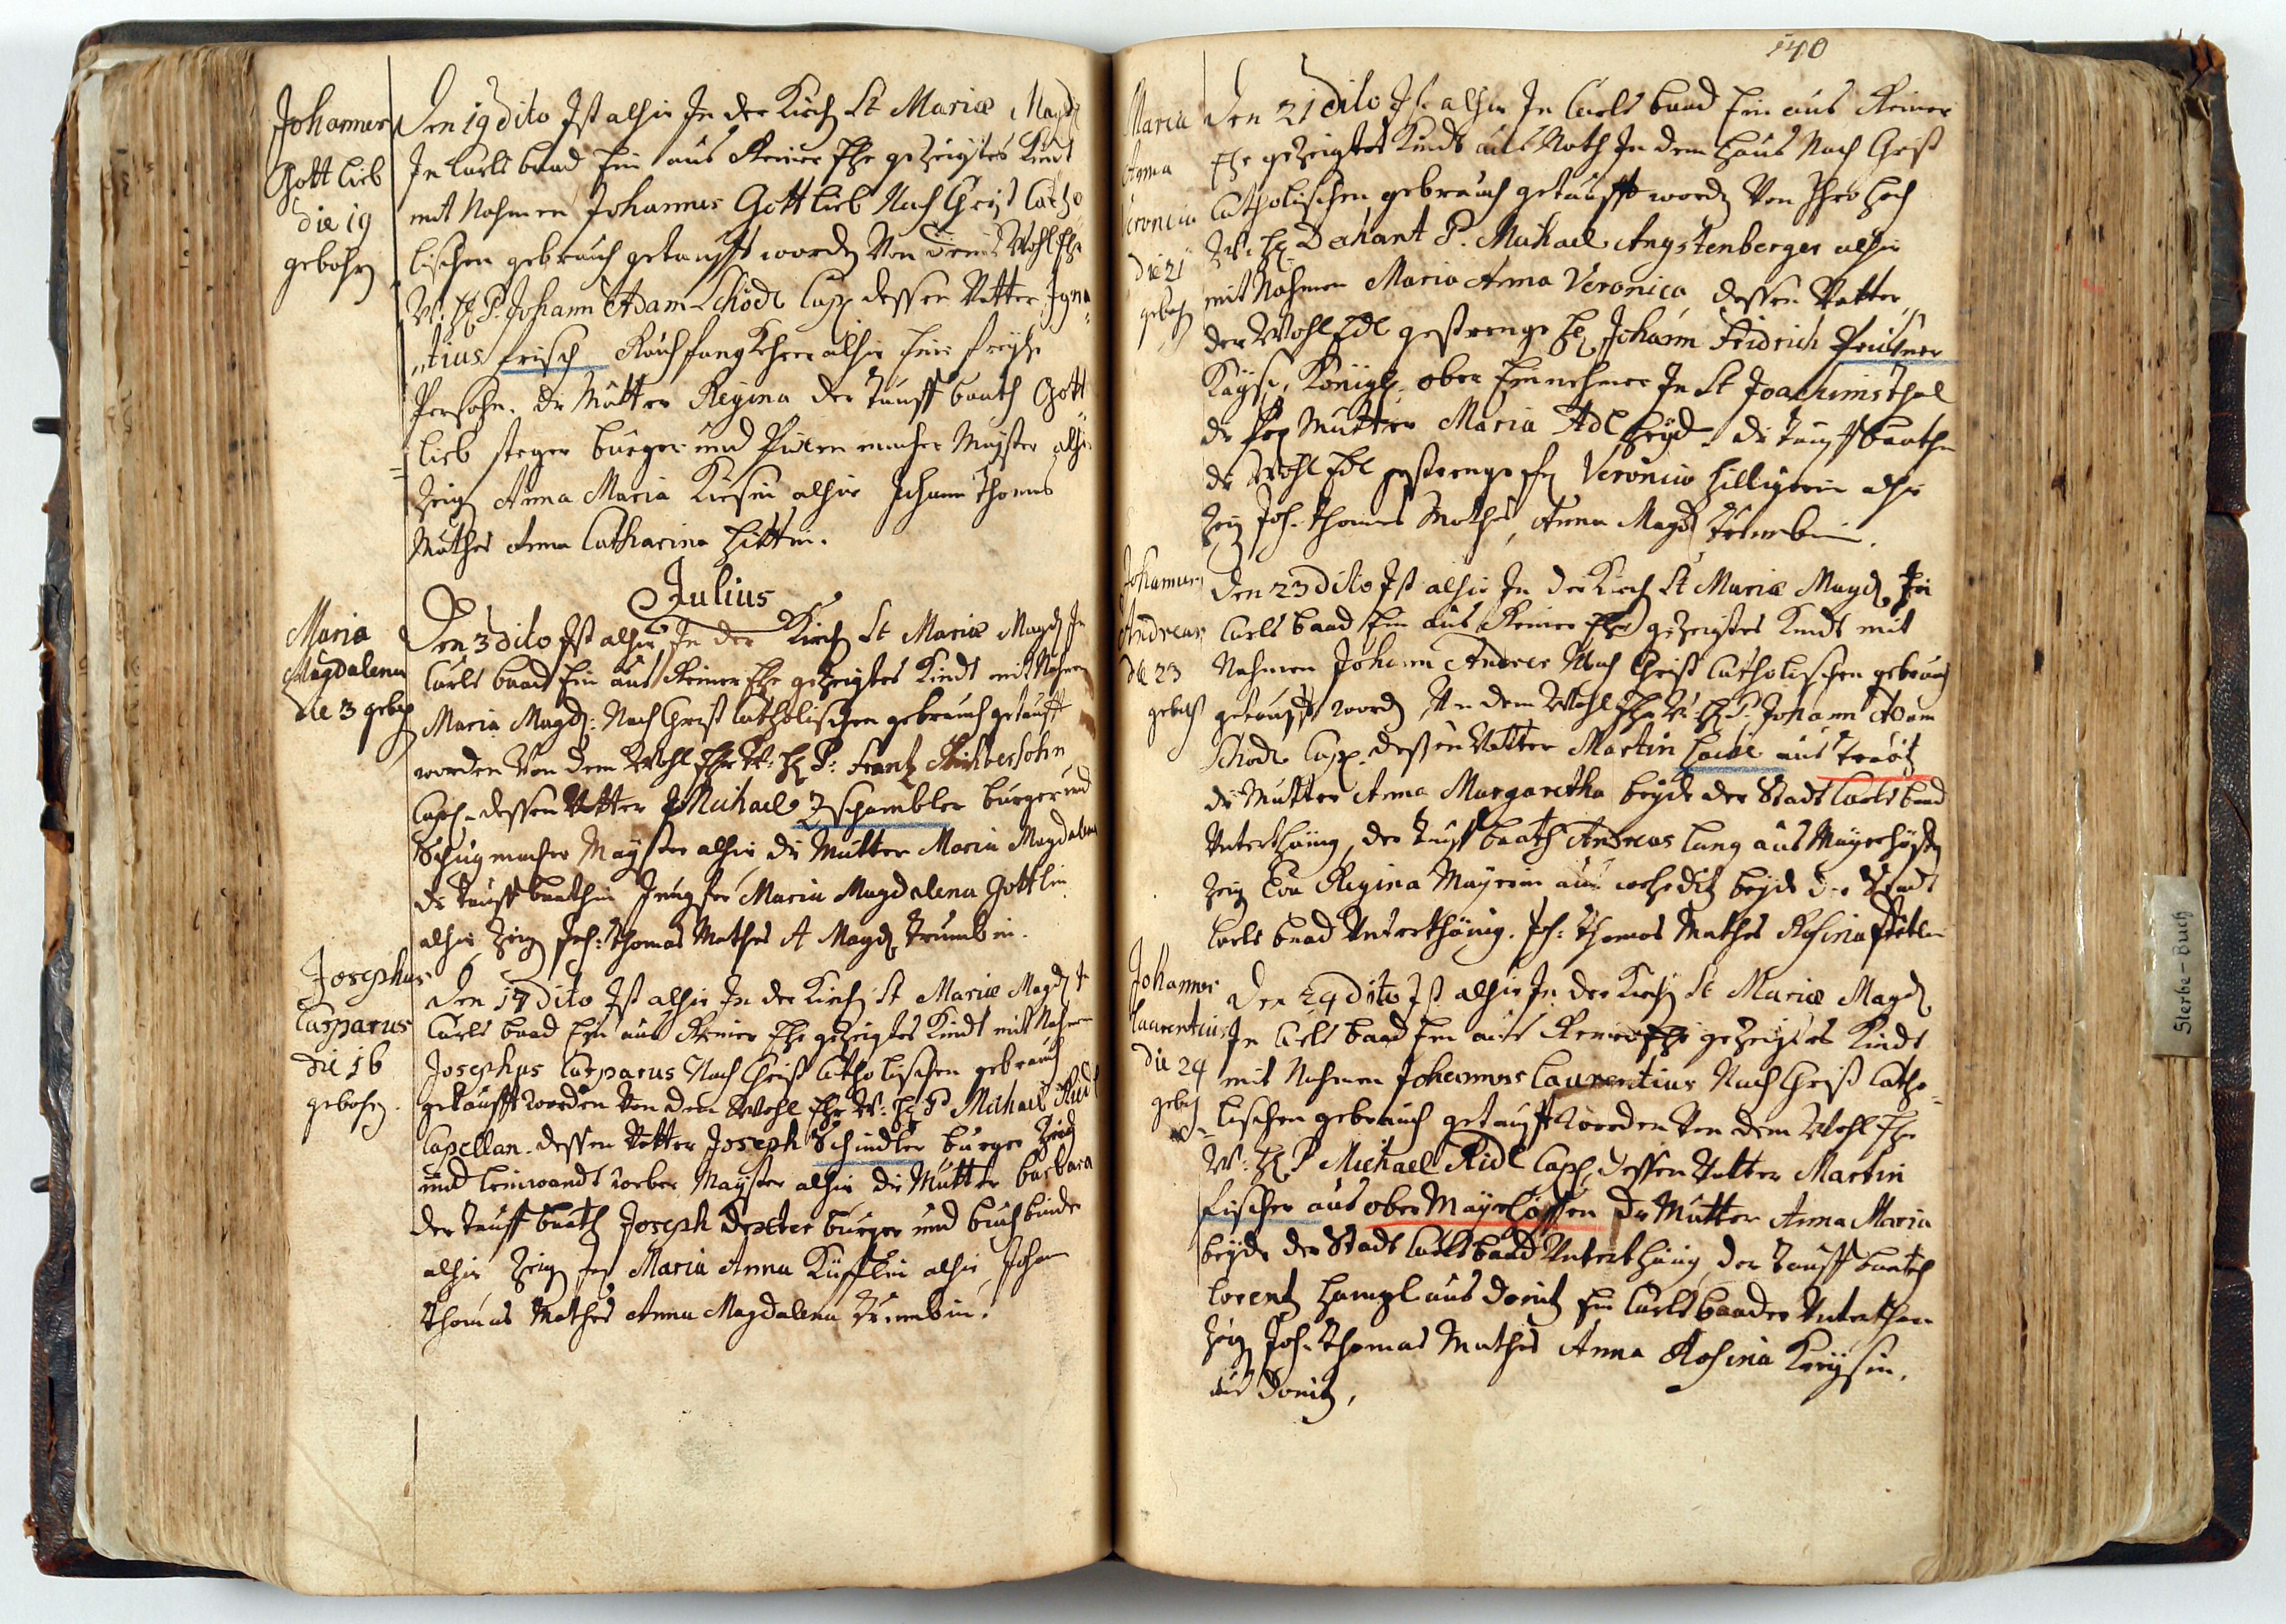 Johannes
Gott lieb
die 19
gebohrn
Den 19 dito Ist alhir In der Kirch St Mariæ Magd
In Carls baad Ein aus Keiner Ehe gezeigtes Kindt
mit Nahmen Johannes Gottlieb Nach Christ Catho
lischen gebrauch getaufft worden Von dem Wohl Ehr
W: H P. Johann Adam Schödl Cap dessen Vatter Igna
tius frisch Rauch fang Kehrer alhir Eine freÿe
Persohn. die Mutter Regina der Tauff baath Gott
lieb steger burger und macher Maÿster alhir
Zeug Anna Maria alhir Johann Thomas
Mathes Anna Catharina
Julius
Maria
Magdalena
die 3 geboh
Den 3 dito Ist alhir In der Kirch St Mariæ Magd In
Carls baad Ein aus Keiner Ehe gezeigtes Kindt mit Nahmen
Maria Magd: Nach Christ Catholischen gebrauch getaufft
worden Von dem Wohl Ehr W: H P: Frantz
Caph. dessen Vatter Michael Zschambler burger und
Schugmacher Maÿster alhir die Mutter Maria Magdalena
die Tauff baathin Jungfer Maria Magdalena Gottlin
alhir Zeug Joh: Thomas Mathes A Magd Trumbin.
Josephus
Casparus
die 16
gebohrn.
Den 17 Dito Ist alhir In der Kirch St Mariæ Magd
Carls baad Ein aus Keiner Ehe gezeigtes Kindt mit Nahmen
Josephus Casparus Nach Christ Catholischen gebrauch
getaufft worden Von dem Wohl Ehr W: H P Michael Ridl
Capellan. dessen Vatter Joseph Schindler burger Zeug
und leinwandt weber Maÿster alhir die Mutter barbara
der Tauff baath Joseph Dexter burger und buchbinder
alhir Zeug Maria Anna alhir Johan
Thomas Mathes Anna Magdalena Trumbin.
140
Maria
Anna
Veronica
die 21
geboh
Den 21 dito Ist alhir In Carls baad Ein aus Keiner
Ehe gezeigtes Kindt aus Noth In dem Haus Nach Christ
Catholischen gebrauch getaufft worden Von Ihro Hoch
W: H. Dechant P. Michael Angstenberger alhir
mit Nahmen Maria Anna Veronica dessen Vatter
der Wohl Edl gestrenge H Johann Fridrich
Kaÿs. Königl. ober Einnehmer In St Joachimsthal
die Mutter Maria die Tauff baathin
die Wohl Edl gestrenge Veronica Hilligerin alhir
Zeug Joh. Thomas Mathes, Anna Magd Trumbin.
Johannes
Andreas
die 23
geboh
Den 23 dito Ist alhir In der Kirch St Mariæ Magd, In
Carls baad Ein aus Keiner Ehe gezeigtes Kindt mit
Nahmen Johann Andres Nach Christ Catholischen gebrauch
getaufft worden, Von dem Wohl Ehr W: H P. Johann Adam
Schödl Cap. dessen Vatter Martin aus
die Mutter Anna Margaretha beÿde der Stadt Carls baad
Unterthänig, der Tauff baath Andreas Lang aus Maÿrhöffen
Zeug Eva Regina Maÿrin aus beÿde der Stadt
Carls baad Unterthänig. Joh: Thomas Mathes Rosina
Johannes
Laurentius
die 24
geboh
Den 24 Dito Ist alhir In der Kirch St Mariæ Magd
In Carls baad Ein aus Keiner Ehe gezeigtes Kindt
mit Nahmen Johannes Laurentius Nach Christ Catho
lischen gebrauch getaufft worden Von dem Wohl Ehr
W: H. P Michael Ridl Cap, dessen Vatter Martin
fischer aus ober Maÿrhöffen die Mutter Anna Maria
beÿde der Stadt Carlsbaad Unterthänig, der Tauff baath
Lorentz Hampl aus Donitz Ein Carls baader Unterthan
Zeug Joh. Thomas Mathes Anna Rosina
aus Donitz,
Sterbe-Buch